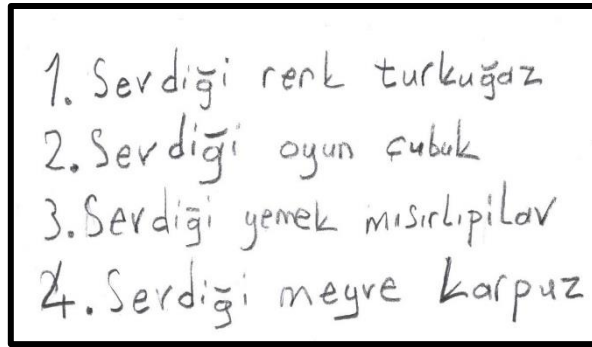 1. Sevdiği renk turkuğaz
2. Sevdiği oyun çubuk
3. Sevdiği yemek mısırlıpilav
4. Sevdiği meyve karpuz